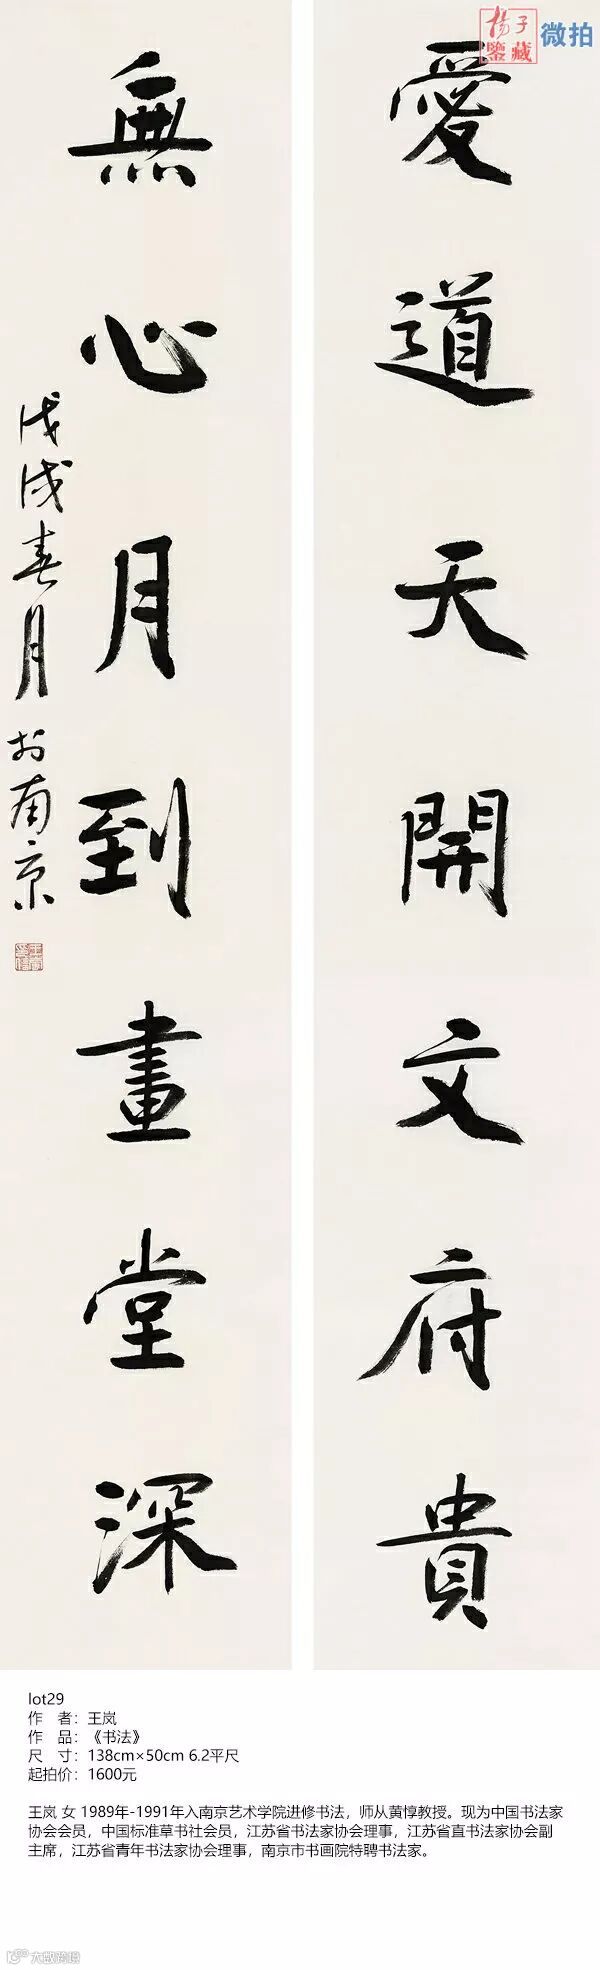 揚子
鑒藏
微拍
愛道天開文府貴
無心月到畫堂深
戊戌春月於南京
lot29
作 者：王岚
作 品：《书法》
尺 寸：138cm×50cm 6.2平尺
起拍价：1600元
王岚 女 1989年-1991年入南京艺术学院进修书法，师从黄惇教授。现为中国书法家
协会会员，中国标准草书社会员，江苏省书法家协会理事，江苏省直书法家协会副
主席，江苏省青年书法家协会理事，南京市书画院特聘书法家。
大数跨境